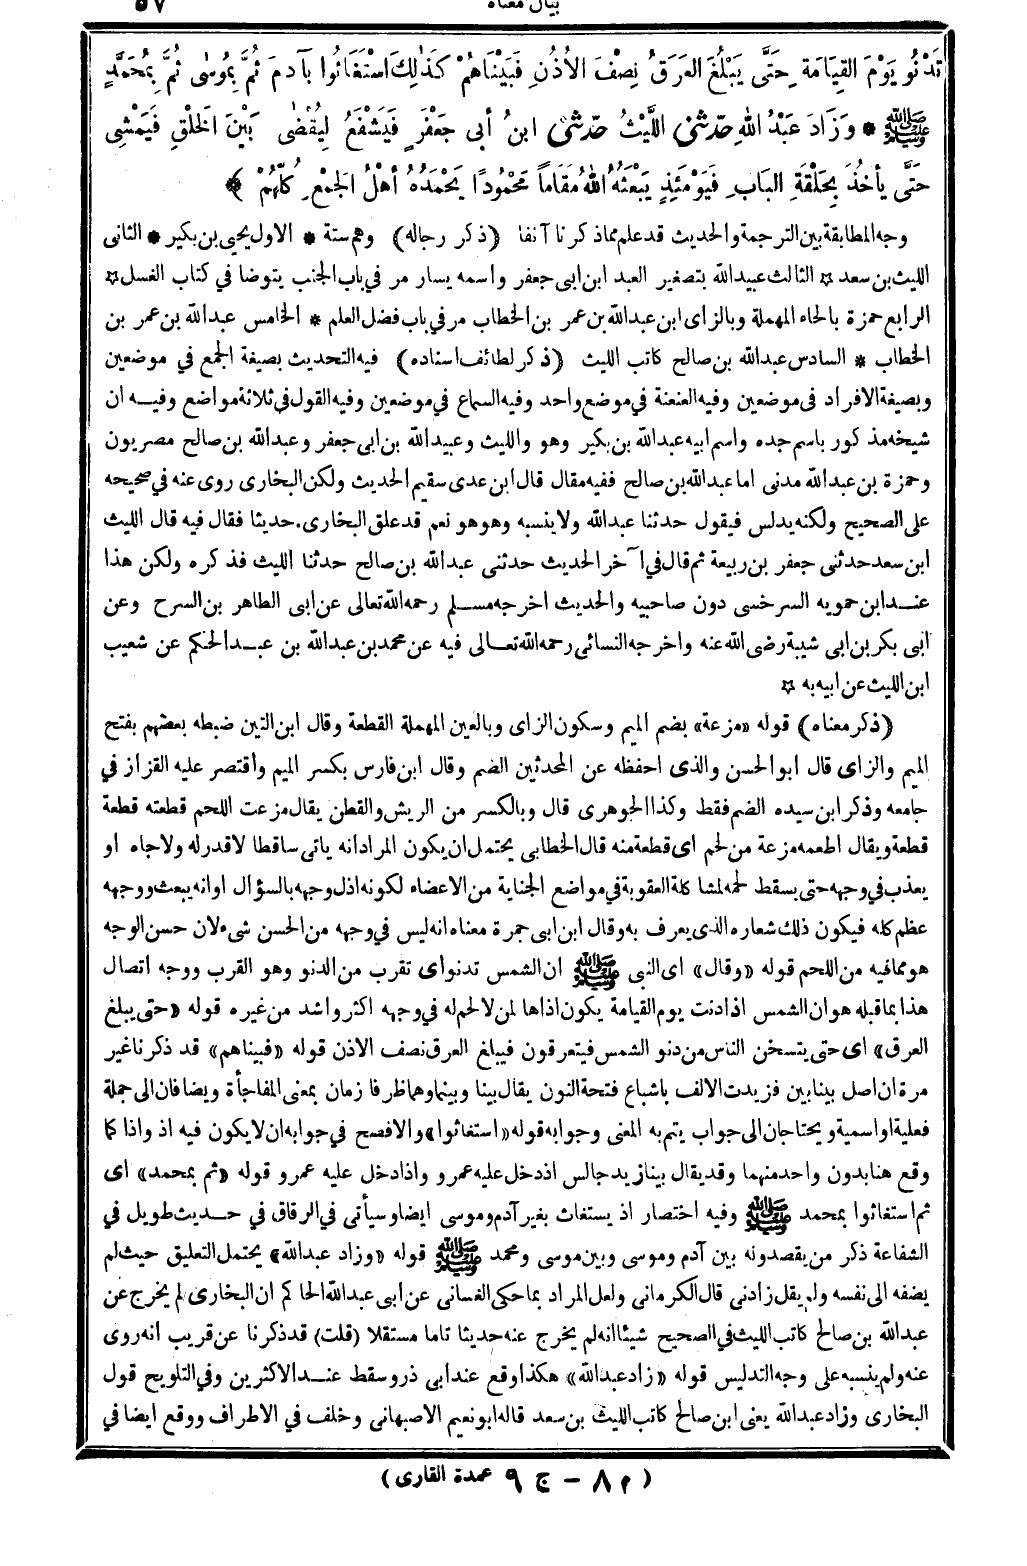 بيان معناه ٥٧
تَدْنُو يَوْمَ القِيَامَةِ حَتَّى يَبْلُغَ العَرَقُ نِصْفَ الأُذُنِ فَبَيْنَاهُمْ كَذَلِكَ اسْتَغَاثُوا بِآدَمَ ثُمَّ بِمُوسَى ثُمَّ بِمُحَمَّدٍ
ﷺ * وَزَادَ عَبْدُ اللهِ حَدَّثَنِي اللَّيْثُ حَدَّثَنِي ابنُ أبي جَعْفَرٍ فَيَشْفَعُ لِيُقْضَى بَيْنَ الخَلْقِ فَيَمْشِي
حَتَّى يأخُذَ بِحَلْقَةِ البَابِ فَيَوْمَئِذٍ يَبْعَثُهُ اللهُ مَقَاماً مَحْمُودًا يَحْمَدُهُ أهْلُ الجَمْعِ كُلُّهُمْ ﴾
وجه المطابقة بين الترجمة والحديث قد علم مما ذكرنا آنفا (ذكر رجاله) وهم ستة * الاول يحيى بن بكير * الثانى
الليث بن سعد * الثالث عبيد الله بتصغير العبد ابن ابى جعفر واسمه يسار مر في باب الجنب يتوضا في كتاب الغسل *
الرابع حمزة بالحاء المهملة وبالزاى ابن عبد الله بن عمر بن الخطاب مر في باب فضل العلم * الخامس عبد الله بن عمر بن
الخطاب * السادس عبد الله بن صالح كاتب الليث (ذكر لطائف اسناده) فيه التحديث بصيغة الجمع في موضعين
وبصيغة الافراد فى موضعين وفيه العنعنة في موضع واحد وفيه السماع في موضعين وفيه القول في ثلاثة مواضع وفيه ان
شيخه مذكور باسم جده واسم ابيه عبد الله بن بكير وهو والليث وعبيد الله بن ابى جعفر وعبد الله بن صالح مصريون
وحمزة بن عبد الله مدنى اما عبد الله بن صالح ففيه مقال قال ابن عدى سقيم الحديث ولكن البخارى روى عنه في صحيحه
على الصحيح ولكنه يدلس فيقول حدثنا عبد الله ولا ينسبه وهو هو نعم قد علق البخارى.حديثا فقال فيه قال الليث
ابن سعد حدثنى جعفر بن ربيعة ثم قال في آخر الحديث حدثنى عبد الله بن صالح حدثنا الليث فذكره ولكن هذا
عند ابن حمويه السرخسى دون صاحبيه والحديث اخرجه مسلم رحمه الله تعالى عن ابى الطاهر بن السرح وعن
ابى بكر بن ابى شيبة رضى الله عنه واخرجه النسائى رحمه الله تعالى فيه عن محمد بن عبد الله بن عبد الحكم عن شعيب
ابن الليث عن ابيه به *
(ذكر معناه) قوله «مزعة» بضم الميم وسكون الزاى وبالعين المهملة القطعة وقال ابن التين ضبطه بعضهم بفتح
الميم والزاى قال ابو الحسن والذى احفظه عن المحدثين الضم وقال ابن فارس بكسر الميم وأقتصر عليه القزاز في
جامعه وذكر ابن سيده الضم فقط وكذا الجوهرى قال وبالكسر من الريش والقطن يقال مزعت اللحم قطعته قطعة
قطعة ويقال اطعمه مزعة من لحم اى قطعة منه قال الخطابى يحتمل ان يكون المراد انه ياتى ساقطا لا قدر له ولا جاه او
يعذب في وجهه حتى يسقط لحمه لمشاكلة العقوبة في مواضع الجناية من الاعضاء لكونه اذل وجهه بالسؤال او انه يبعث ووجهه
عظم كله فيكون ذلك شعاره الذى يعرف به وقال ابن ابى جمرة معناه انه ليس في وجهه من الحسن شىء لان حسن الوجه
هو مما فيه من اللحم قوله «وقال» اى النبى ﷺ ان الشمس تدنو اى تقرب من الدنو وهو القرب ووجه اتصال
هذا بما قبله هو ان الشمس اذا دنت يوم القيامة يكون اذاها لمن لا لحم له في وجهه اكثر واشد من غيره قوله «حتى يبلغ
العرق» اى حتى يتسخن الناس من دنو الشمس فيتعرقون فيبلغ العرق نصف الاذن قوله «فبيناهم» قد ذكرنا غير
مرة ان اصل بينا بين فزيدت الالف باشباع فتحة النون يقال بينا وبينما وهما ظرفا زمان بمعنى المفاجأة ويضافان الى جملة
فعلية او اسمية ويحتاجان الى جواب يتم به المعنى وجوابه قوله «استغاثوا» والافصح في جوابه ان لا يكون فيه اذ واذا كما
وقع هنا بدون واحد منهما وقد يقال بينا زيد جالس اذ دخل عليه عمرو واذا دخل عليه عمرو قوله «ثم بمحمد» اى
ثم استغاثوا بمحمد ﷺ وفيه اختصار اذ يستغاث بغير آدم وموسى ايضا وسيأتى في الرقاق في حديث طويل في
الشفاعة ذكر من يقصدونه بين آدم وموسى وبين موسى ومحمد ﷺ قوله «وزاد عبد الله» يحتمل التعليق حيث لم
يضفه الى نفسه ولم يقل زادنى قال الكرمانى ولعل المراد بما حكى الغسانى عن ابى عبد الله الحاكم ان البخارى لم يخرج عن
عبد الله بن صالح كاتب الليث في الصحيح شيئا انه لم يخرج عنه حديثا تاما مستقلا (قلت) قد ذكرنا عن قريب انه روى
عنه ولم ينسبه على وجه التدليس قوله «زاد عبد الله» هكذا وقع عند ابى ذر وسقط عند الاكثرين وفي التلويح قول
البخارى وزاد عبد الله يعنى ابن صالح كاتب الليث بن سعد قاله ابو نعيم الاصبهانى وخلف في الاطراف ووقع ايضا في
(م ٨ - ج ٩ عمدة القارى)